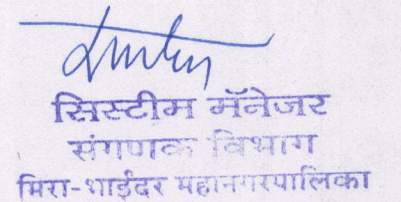 सिस्टीम मॅनेजर
संगणक विभाग
मिरा-भाईंदर महानगरपालिका